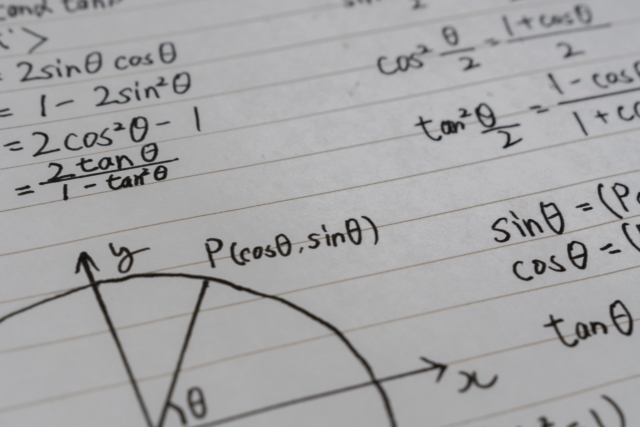 and tan
= 2sinθ cosθ
= 1 - 2sin²θ
= 2cos²θ - 1
= 2tanθ / 1 - tan²θ
cos² θ/2 = 1+cosθ / 2
tan² θ/2 = 1-cosθ / 1+co
y
P(cosθ, sinθ)
θ
x
sinθ = (P
cosθ = (
tanθ